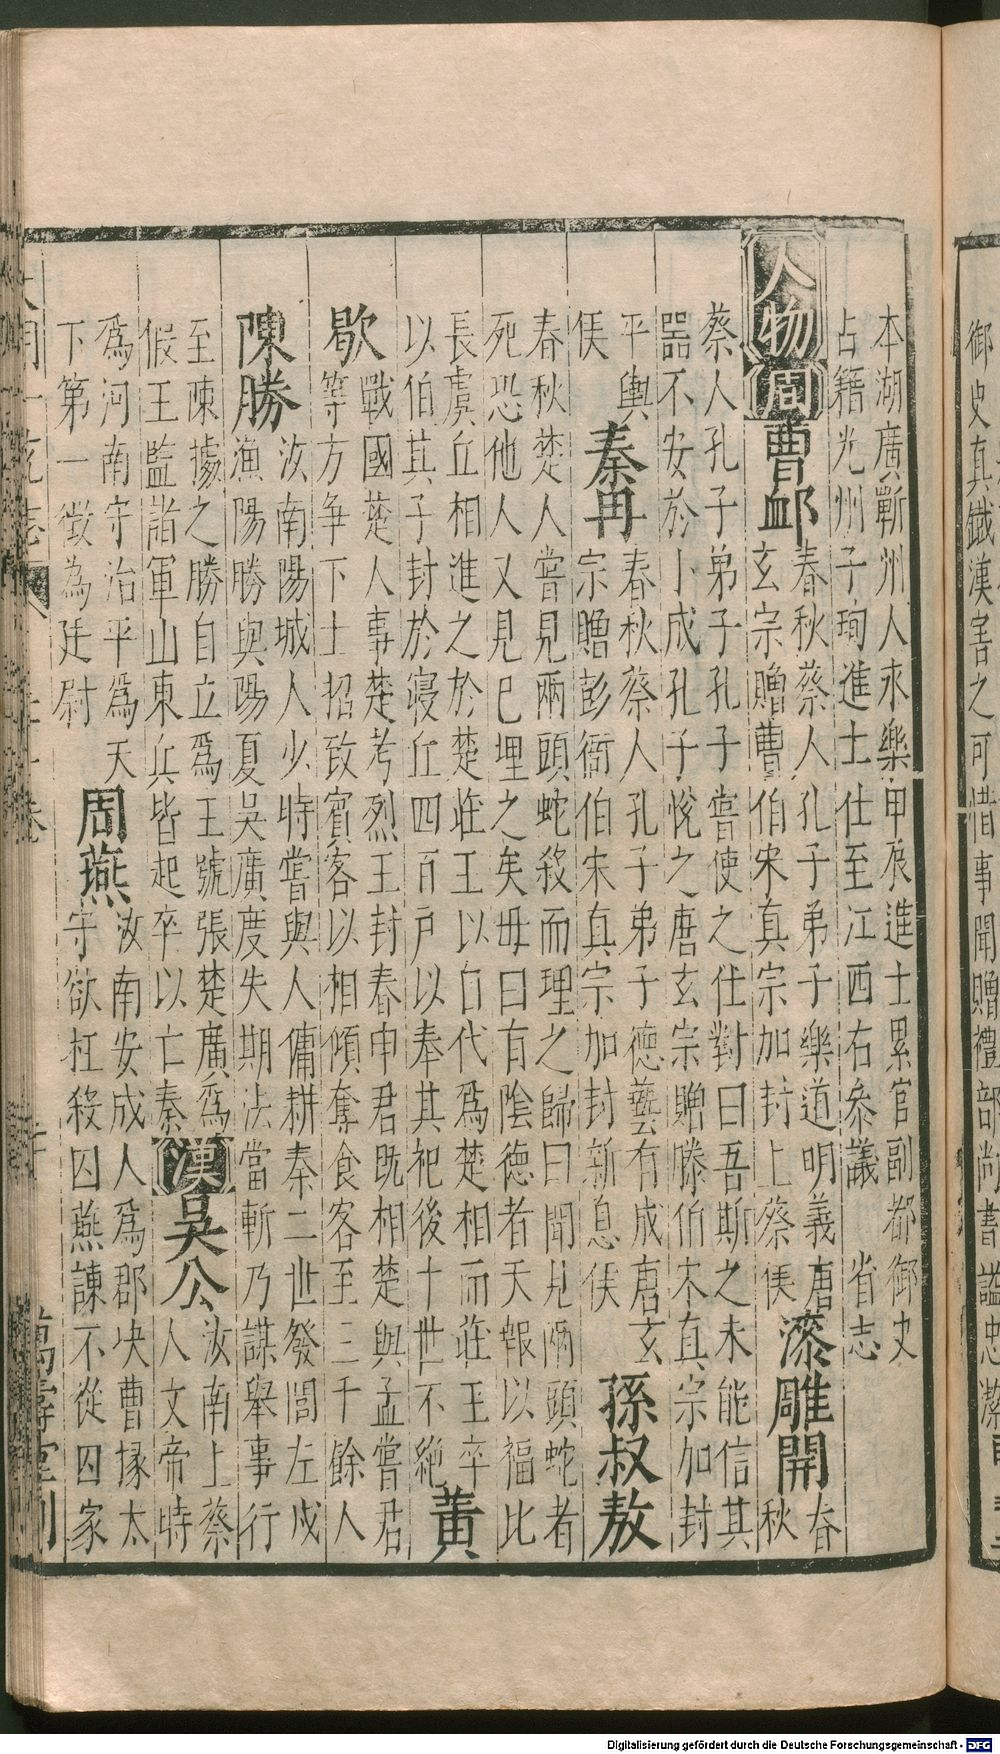 本湖廣蘄州人永樂甲辰進士累官副都御史
占籍光州子珣進士仕至江西右叅議　省志
人物 周 曹卹 春秋蔡人孔子弟子樂道明義唐
玄宗贈曹伯宋真宗加封上蔡侯
漆雕開 春秋
蔡人孔子弟子孔子嘗使之仕對曰吾斯之未能信其
器不安於小成孔子悅之唐玄宗贈滕伯宋真宗加封
平輿
侯 秦冉 春秋蔡人孔子弟子德藝有成唐玄
宗贈彭衙伯宋真宗加封新息侯
孫叔敖
春秋楚人嘗見兩頭蛇殺而埋之歸曰聞見兩頭蛇者
死恐他人又見已埋之矣母曰有陰德者天報以福比
長虞丘相進之於楚莊王以自代爲楚相而莊王卒
以伯其子封於寢丘四百戶以奉其祀後十世不絶
黃
歇 戰國楚人事楚考烈王封春申君旣相楚與孟嘗君
等方争下士招致賓客以相傾奪食客至三千餘人
陳勝 汝南陽城人少時嘗與人傭耕秦二世發閭左戍
漁陽勝與陽夏吳廣度失期法當斬乃謀舉事行
至陳據之勝自立爲王號張楚廣爲
假王監諸軍山東兵皆起卒以亡秦
漢 吳公 汝南上蔡
人文帝時
爲河南守治平爲天
下第一徵為廷尉
周燕 汝南安成人爲郡决曹掾太
守欲枉殺囚燕諫不從囚家
萬壽堂刊
御史真鐵漢害之可惜事聞贈禮部尚書謚忠
Digitalisierung gefördert durch die Deutsche Forschungsgemeinschaft - DFG